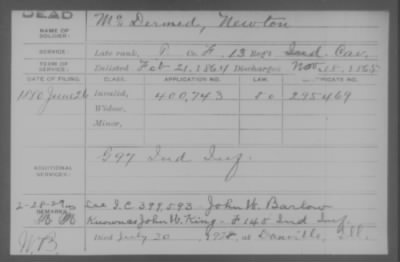 DEAD
NAME OF SOLDIER: Mc Dermed, Newton
SERVICE: Late rank, P Co. F, 13 Reg't Ind. Cav.
TERM OF SERVICE: Enlisted Feb 21, 1864 Discharged Nov 18, 1865
DATE OF FILING. CLASS. APPLICATION NO. LAW. CERTIFICATE NO.
1880 June 26 Invalid, 400,743 295469
Widow,
Minor,
ADDITIONAL SERVICES: G 97 Ind Inf.
2-28-29
REMARKS: See I.C. 399,593 - John W. Barlow
Known as John W. King - F 145 Ind Inf.
Died July 20, 1928, at Danville, Ill.